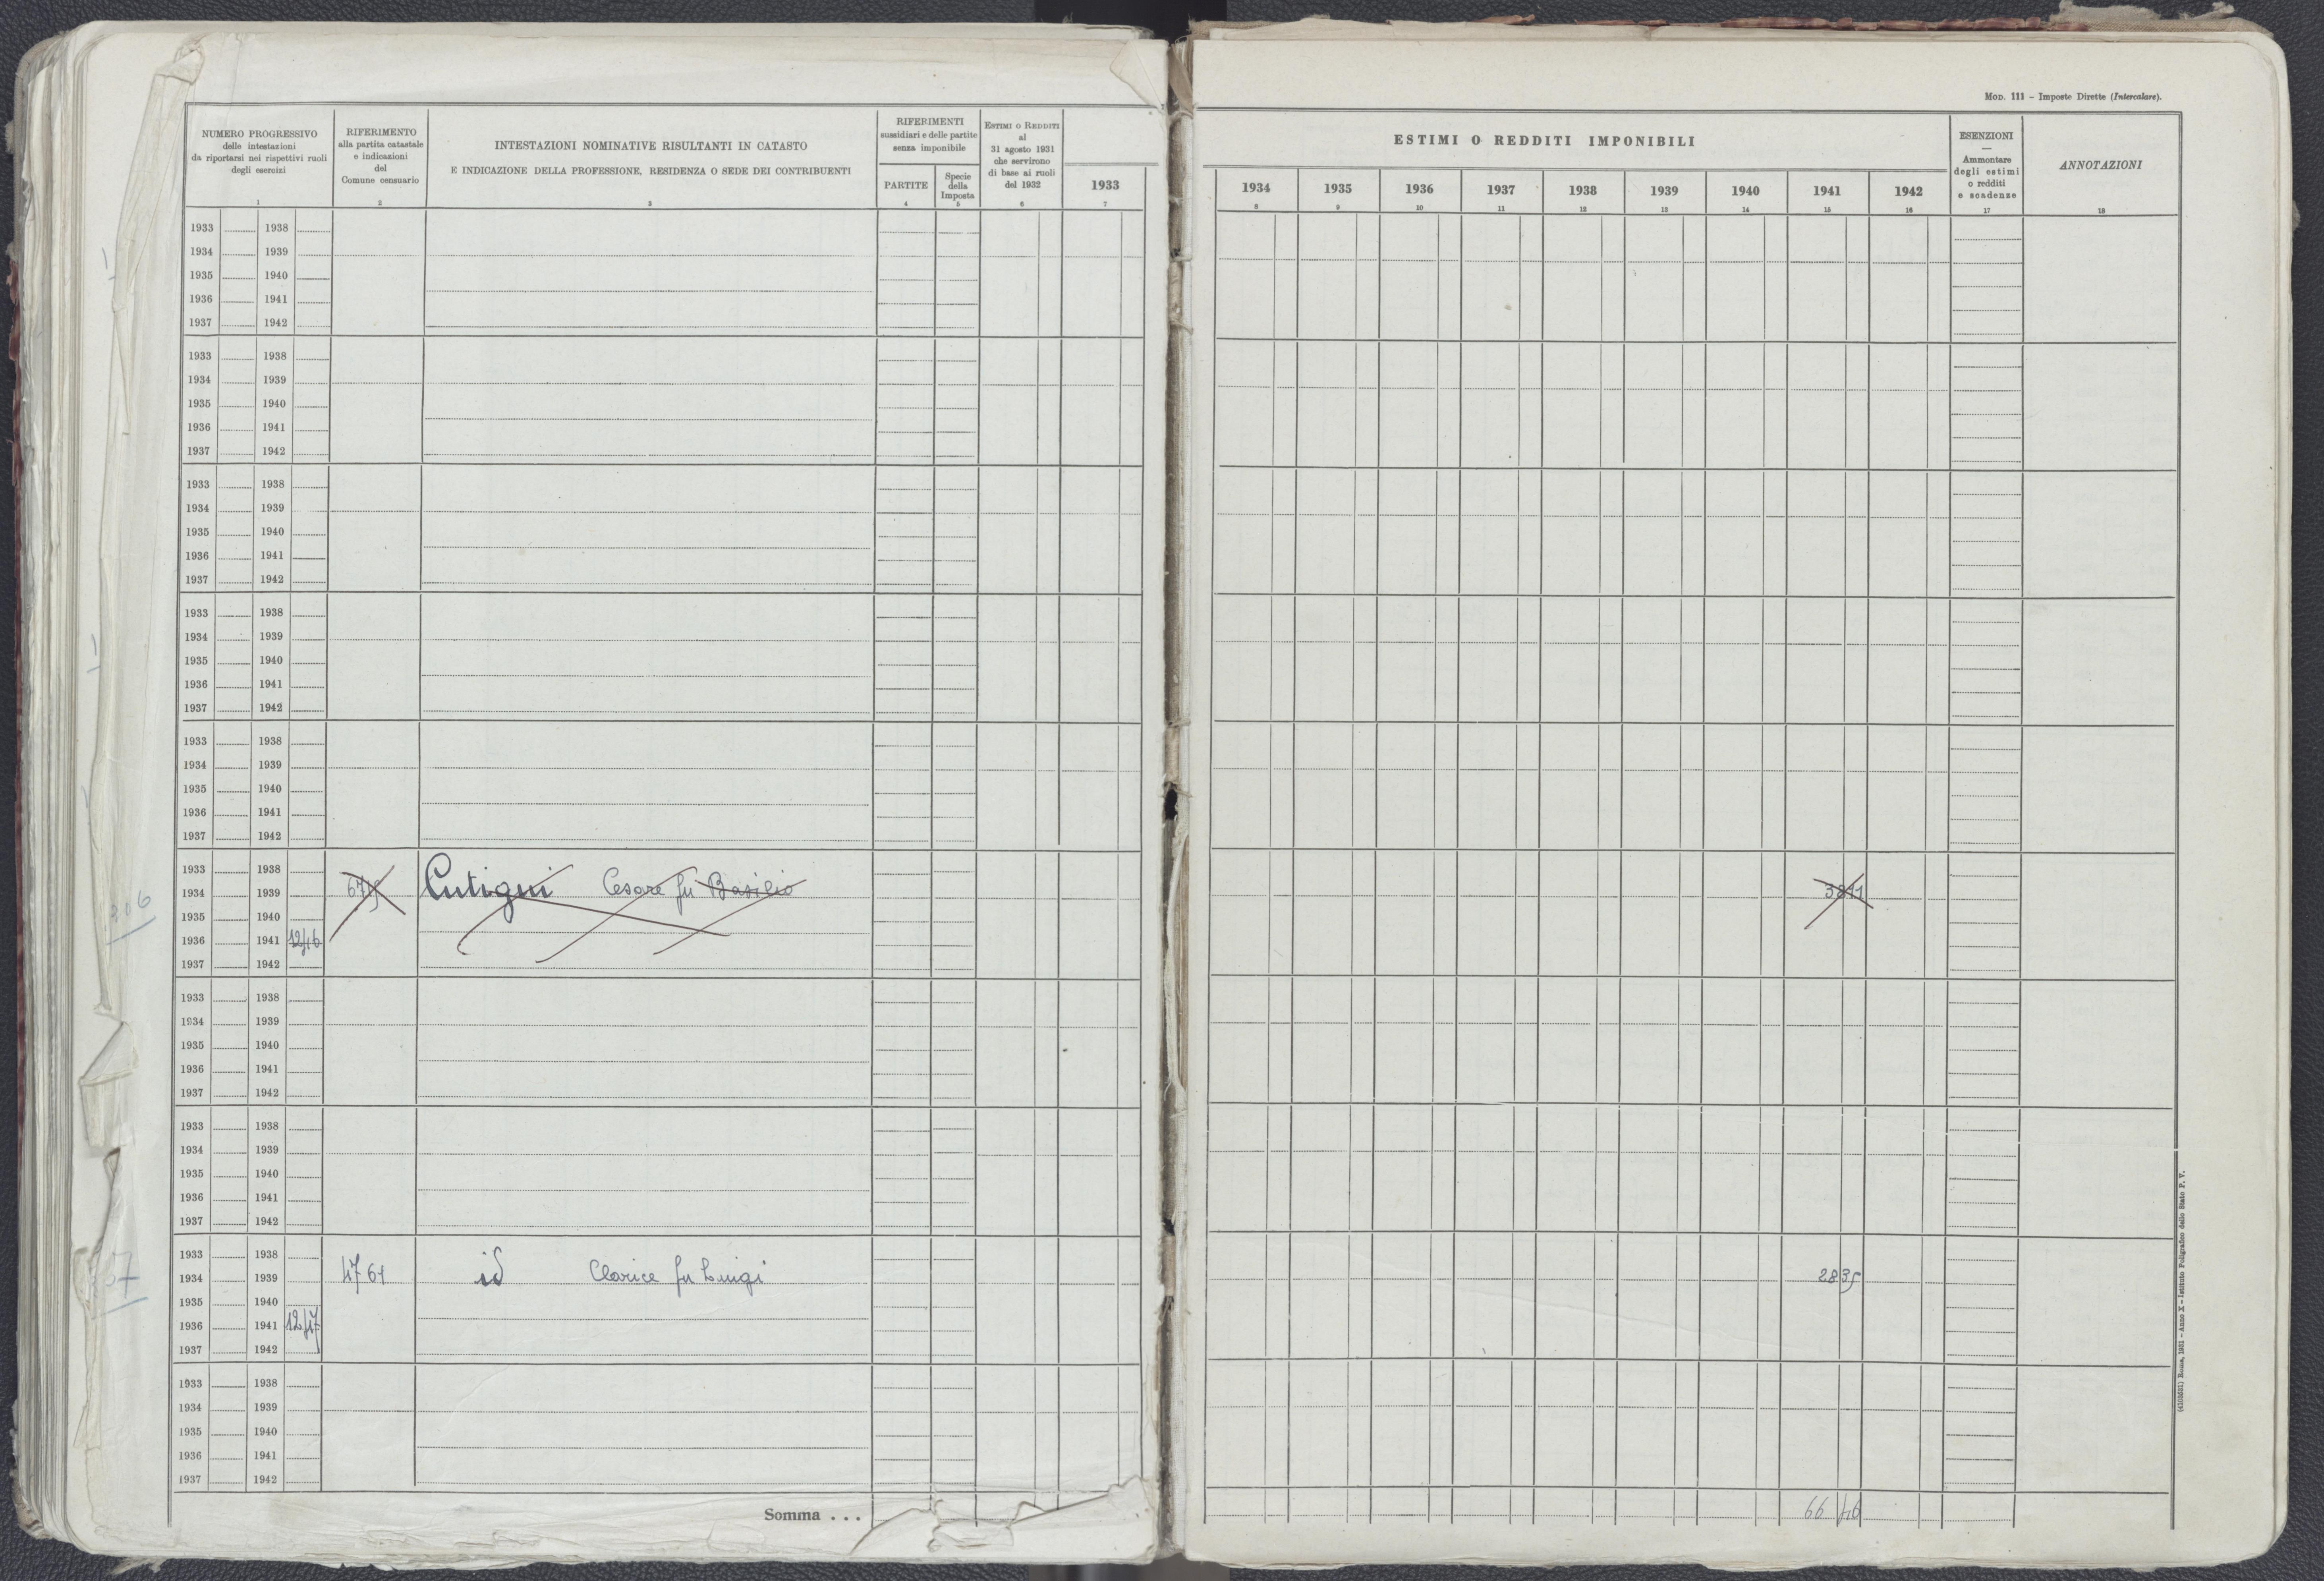 MOD. 111 – Imposte Dirette (Intercalare).
NUMERO PROGRESSIVO
delle intestazioni
da riportarsi nei rispettivi ruoli
degli esercizi
1
RIFERIMENTO
alla partita catastale
e indicazioni
del
Comune censuario
2
INTESTAZIONI NOMINATIVE RISULTANTI IN CATASTO
E INDICAZIONE DELLA PROFESSIONE, RESIDENZA O SEDE DEI CONTRIBUENTI
3
RIFERIMENTI
sussidiari e delle partite
senza imponibile
PARTITE
4
Specie
della
Imposta
5
ESTIMI O REDDITI
al
31 agosto 1931
che servirono
di base ai ruoli
del 1932
6
1933
7
ESTIMI O REDDITI IMPONIBILI
1934 1935 1936 1937 1938 1939 1940 1941 1942
8 9 10 11 12 13 14 15 16
ESENZIONI
—
Ammontare
degli estimi
o redditi
e scadenze
17
ANNOTAZIONI
18
1933 1938
1934 1939
1935 1940
1936 1941
1937 1942
1933 1938
1934 1939
1935 1940
1936 1941
1937 1942
1933 1938
1934 1939
1935 1940
1936 1941
1937 1942
1933 1938
1934 1939
1935 1940
1936 1941
1937 1942
1933 1938
1934 1939
1935 1940
1936 1941
1937 1942
1933 1938
1934 1939 Cutigni Cesare fu Basilio 3811
1935 1940
1936 1941
1937 1942
1933 1938
1934 1939
1935 1940
1936 1941
1937 1942
1933 1938
1934 1939
1935 1940
1936 1941
1937 1942
1933 1938
1934 1939 4761 id Clarice fu Luigi 2835
1935 1940
1936 1941 1247
1937 1942
1933 1938
1934 1939
1935 1940
1936 1941
1937 1942
Somma . . . 66 46
(4103631) Roma, 1931 – Anno X – Istituto Poligrafico dello Stato P. V.